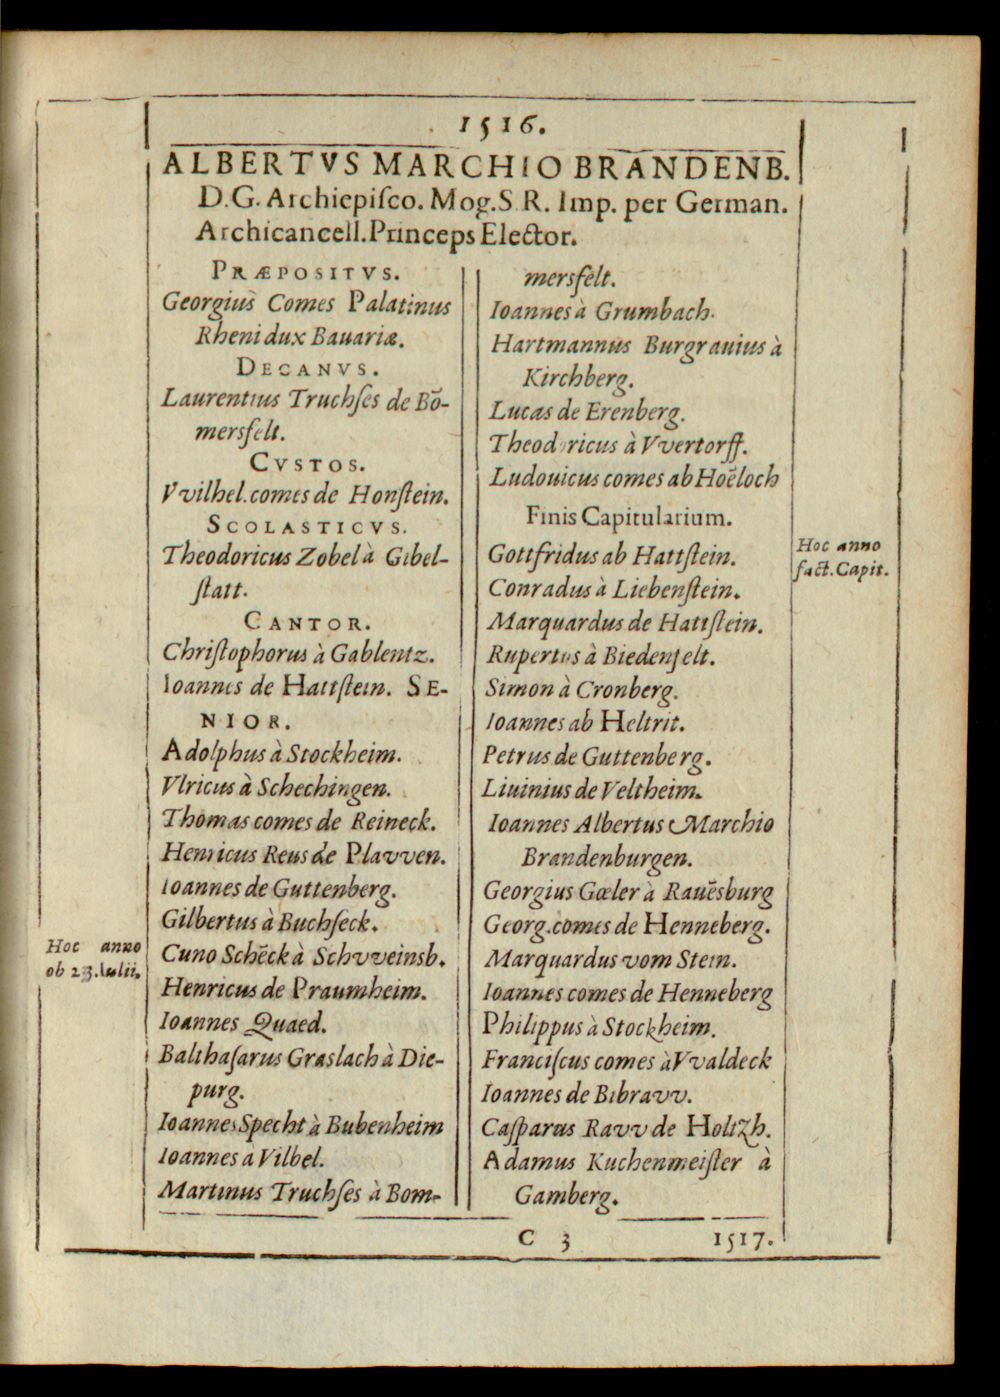 1516.
ALBERTVS MARCHIO BRANDENB.
D.G. Archiepiſco. Mog. S R. Imp. per German.
Archicancell. Princeps Elector.
PRÆPOSITVS.
Georgius Comes Palatinus
Rheni dux Bauariæ.
DECANVS.
Laurentius Truchſes de Bō-
mersfelt.
CVSTOS.
Vvilhel. comes de Honſtein.
SCOLASTICVS.
Theodoricus Zobel à Gibel-
ſtatt.
CANTOR.
Chriſtophorus à Gablentz.
Ioannes de Hattſtein. SE-
NIOR.
Adolphus à Stockheim.
Vlricus à Schechingen.
Thomas comes de Reineck.
Henricus Reus de Plavven.
Ioannes de Guttenberg.
Gilbertus à Buchſeck.
Hoc anno
ob 23. Iulii.
Cuno Schēck à Schvveinsb.
Henricus de Praumheim.
Ioannes Quaed.
Balthaſarus Graslach à Die-
purg.
Ioannes Specht à Bubenheim
Ioannes a Vilbel.
Martinus Truchſes à Bom-
mersfelt.
Ioannes à Grumbach.
Hartmannus Burgrauius à
Kirchberg.
Lucas de Erenberg.
Theodoricus à Vvertorff.
Ludouicus comes ab Hoēloch
Finis Capitularium.
Hoc anno
fact. Capit.
Gottfridus ab Hattſtein.
Conradus à Liebenſtein.
Marquardus de Hattſtein.
Rupertus à Biedenfelt.
Simon à Cronberg.
Ioannes ab Heltrit.
Petrus de Guttenberg.
Liuinius de Veltheim.
Ioannes Albertus Marchio
Brandenburgen.
Georgius Gœler à Rauēsburg
Georg. comes de Henneberg.
Marquardus vom Stein.
Ioannes comes de Henneberg
Philippus à Stockheim.
Franciſcus comes à Vvaldeck
Ioannes de Bibravv.
Caſparus Ravv de Holtzh.
Adamus Kuchenmeiſter à
Gamberg.
C 3
1517.